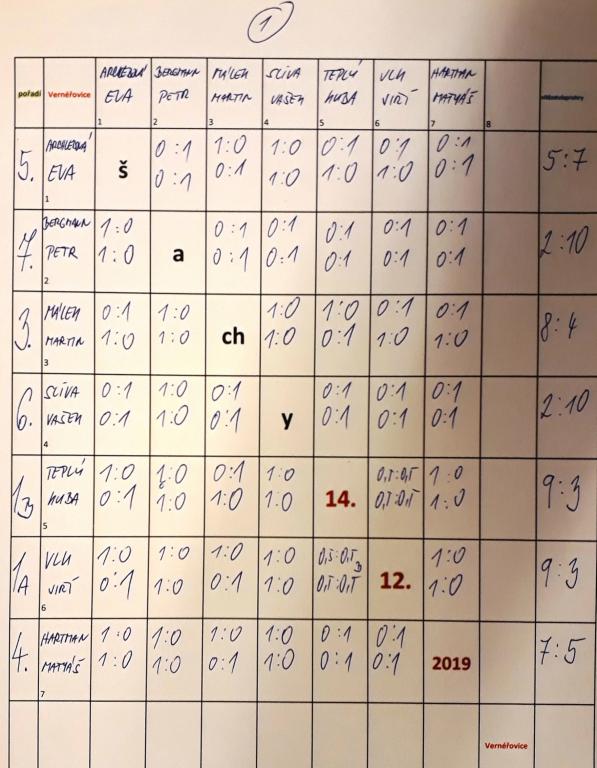 1
pořadí Vernéřovice EVA PETR MARTIN VAŠEK KUBA VIRT MATYÁŠ
BERGMANN MÁLEK SLÍVA TEPLÝ VLK HARTMAN
1 2 3 4 5 6 7 8
5. š 0:1 1:0 1:0 0:1 0:1 0:1 5:7
EVA 0:1 0:1 1:0 1:0 1:0 0:1
1
7. BERGMANN 1:0 a 0:1 0:1 0:1 0:1 0:1 2:10
PETR 1:0 0:1 0:1 0:1 0:1 0:1
2
3. MÁLEK 0:1 1:0 ch 1:0 1:0 0:1 0:1 8:4
MARTIN 1:0 1:0 1:0 0:1 1:0 1:0
3
6. SLÍVA 0:1 1:0 0:1 y 0:1 0:1 0:1 2:10
VAŠEK 0:1 1:0 0:1 0:1 0:1 0:1
4
1B TEPLÝ 1:0 1:0 0:1 1:0 14. 0,5:0,5 1:0 9:3
KUBA 0:1 1:0 1:0 1:0 0,5:0,5 1:0
5
1A VLK 1:0 1:0 1:0 1:0 0,5:0,5 12. 1:0 9:3
VIRT 0:1 1:0 0:1 1:0 0,5:0,5 1:0
6
4. HARTMAN 1:0 1:0 1:0 1:0 0:1 0:1 2019 7:5
MATYÁŠ 1:0 1:0 0:1 1:0 0:1 0:1
7
Vernéřovice